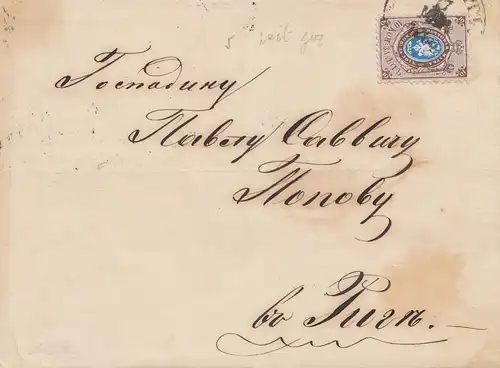 Господину
Павлу Саввичу
Попову
въ Ригѣ.